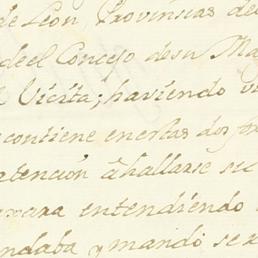 de Leon, Provincias de
de el Concejo de su Ma
Vicita; haviendo vi
contiene en estas dos fo
atención á hallarse su
para entendiendo
ndaba y mandó se